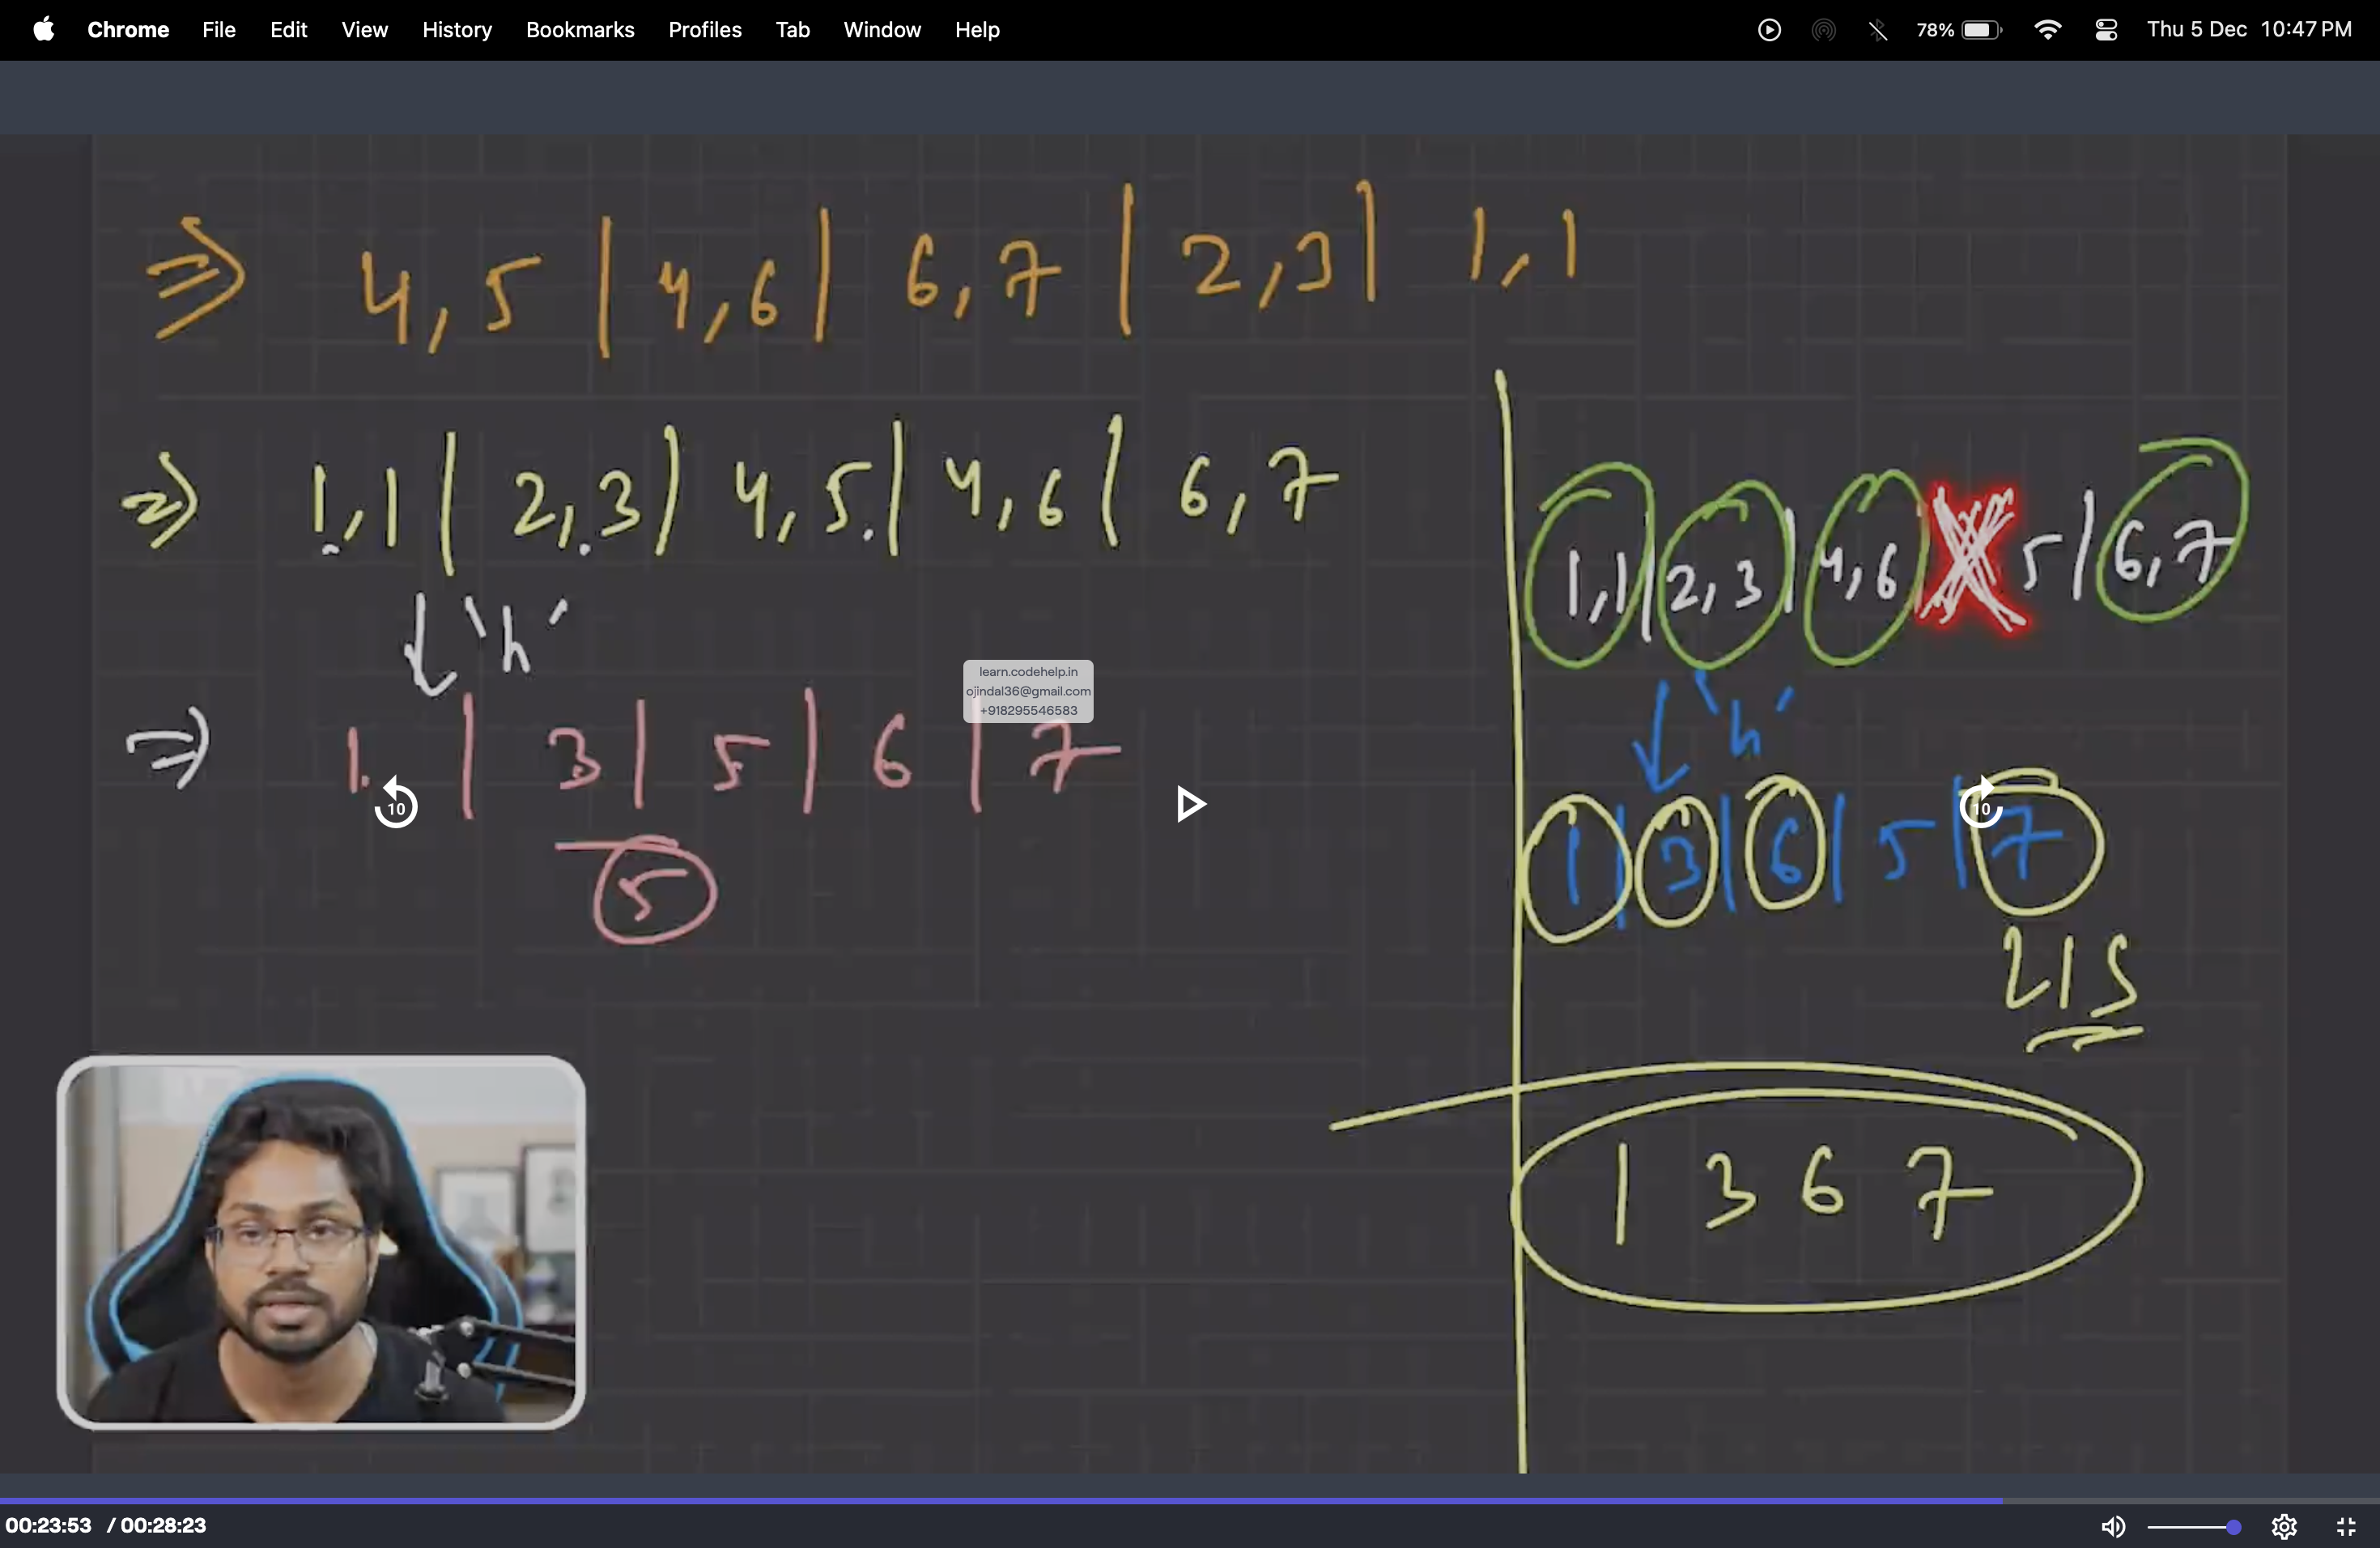 Chrome File Edit View History Bookmarks Profiles Tab Window Help 78% Thu 5 Dec 10:47 PM
⇒ 4,5 | 4,6 | 6,7 | 2,3 | 1,1
⇒ 1,1 | 2,3 | 4,5 | 4,6 | 6,7
↓ 'h'
⇒ 1 | 3 | 5 | 6 | 7
5
learn.codehelp.in
ojindal36@gmail.com
+918295546583
10
1,1 | 2,3 | 4,6 | 5 | 6,7
↓ 'h'
1 | 3 | 6 | 5 | 7
10
LIS
1 3 6 7
00:23:53 / 00:28:23